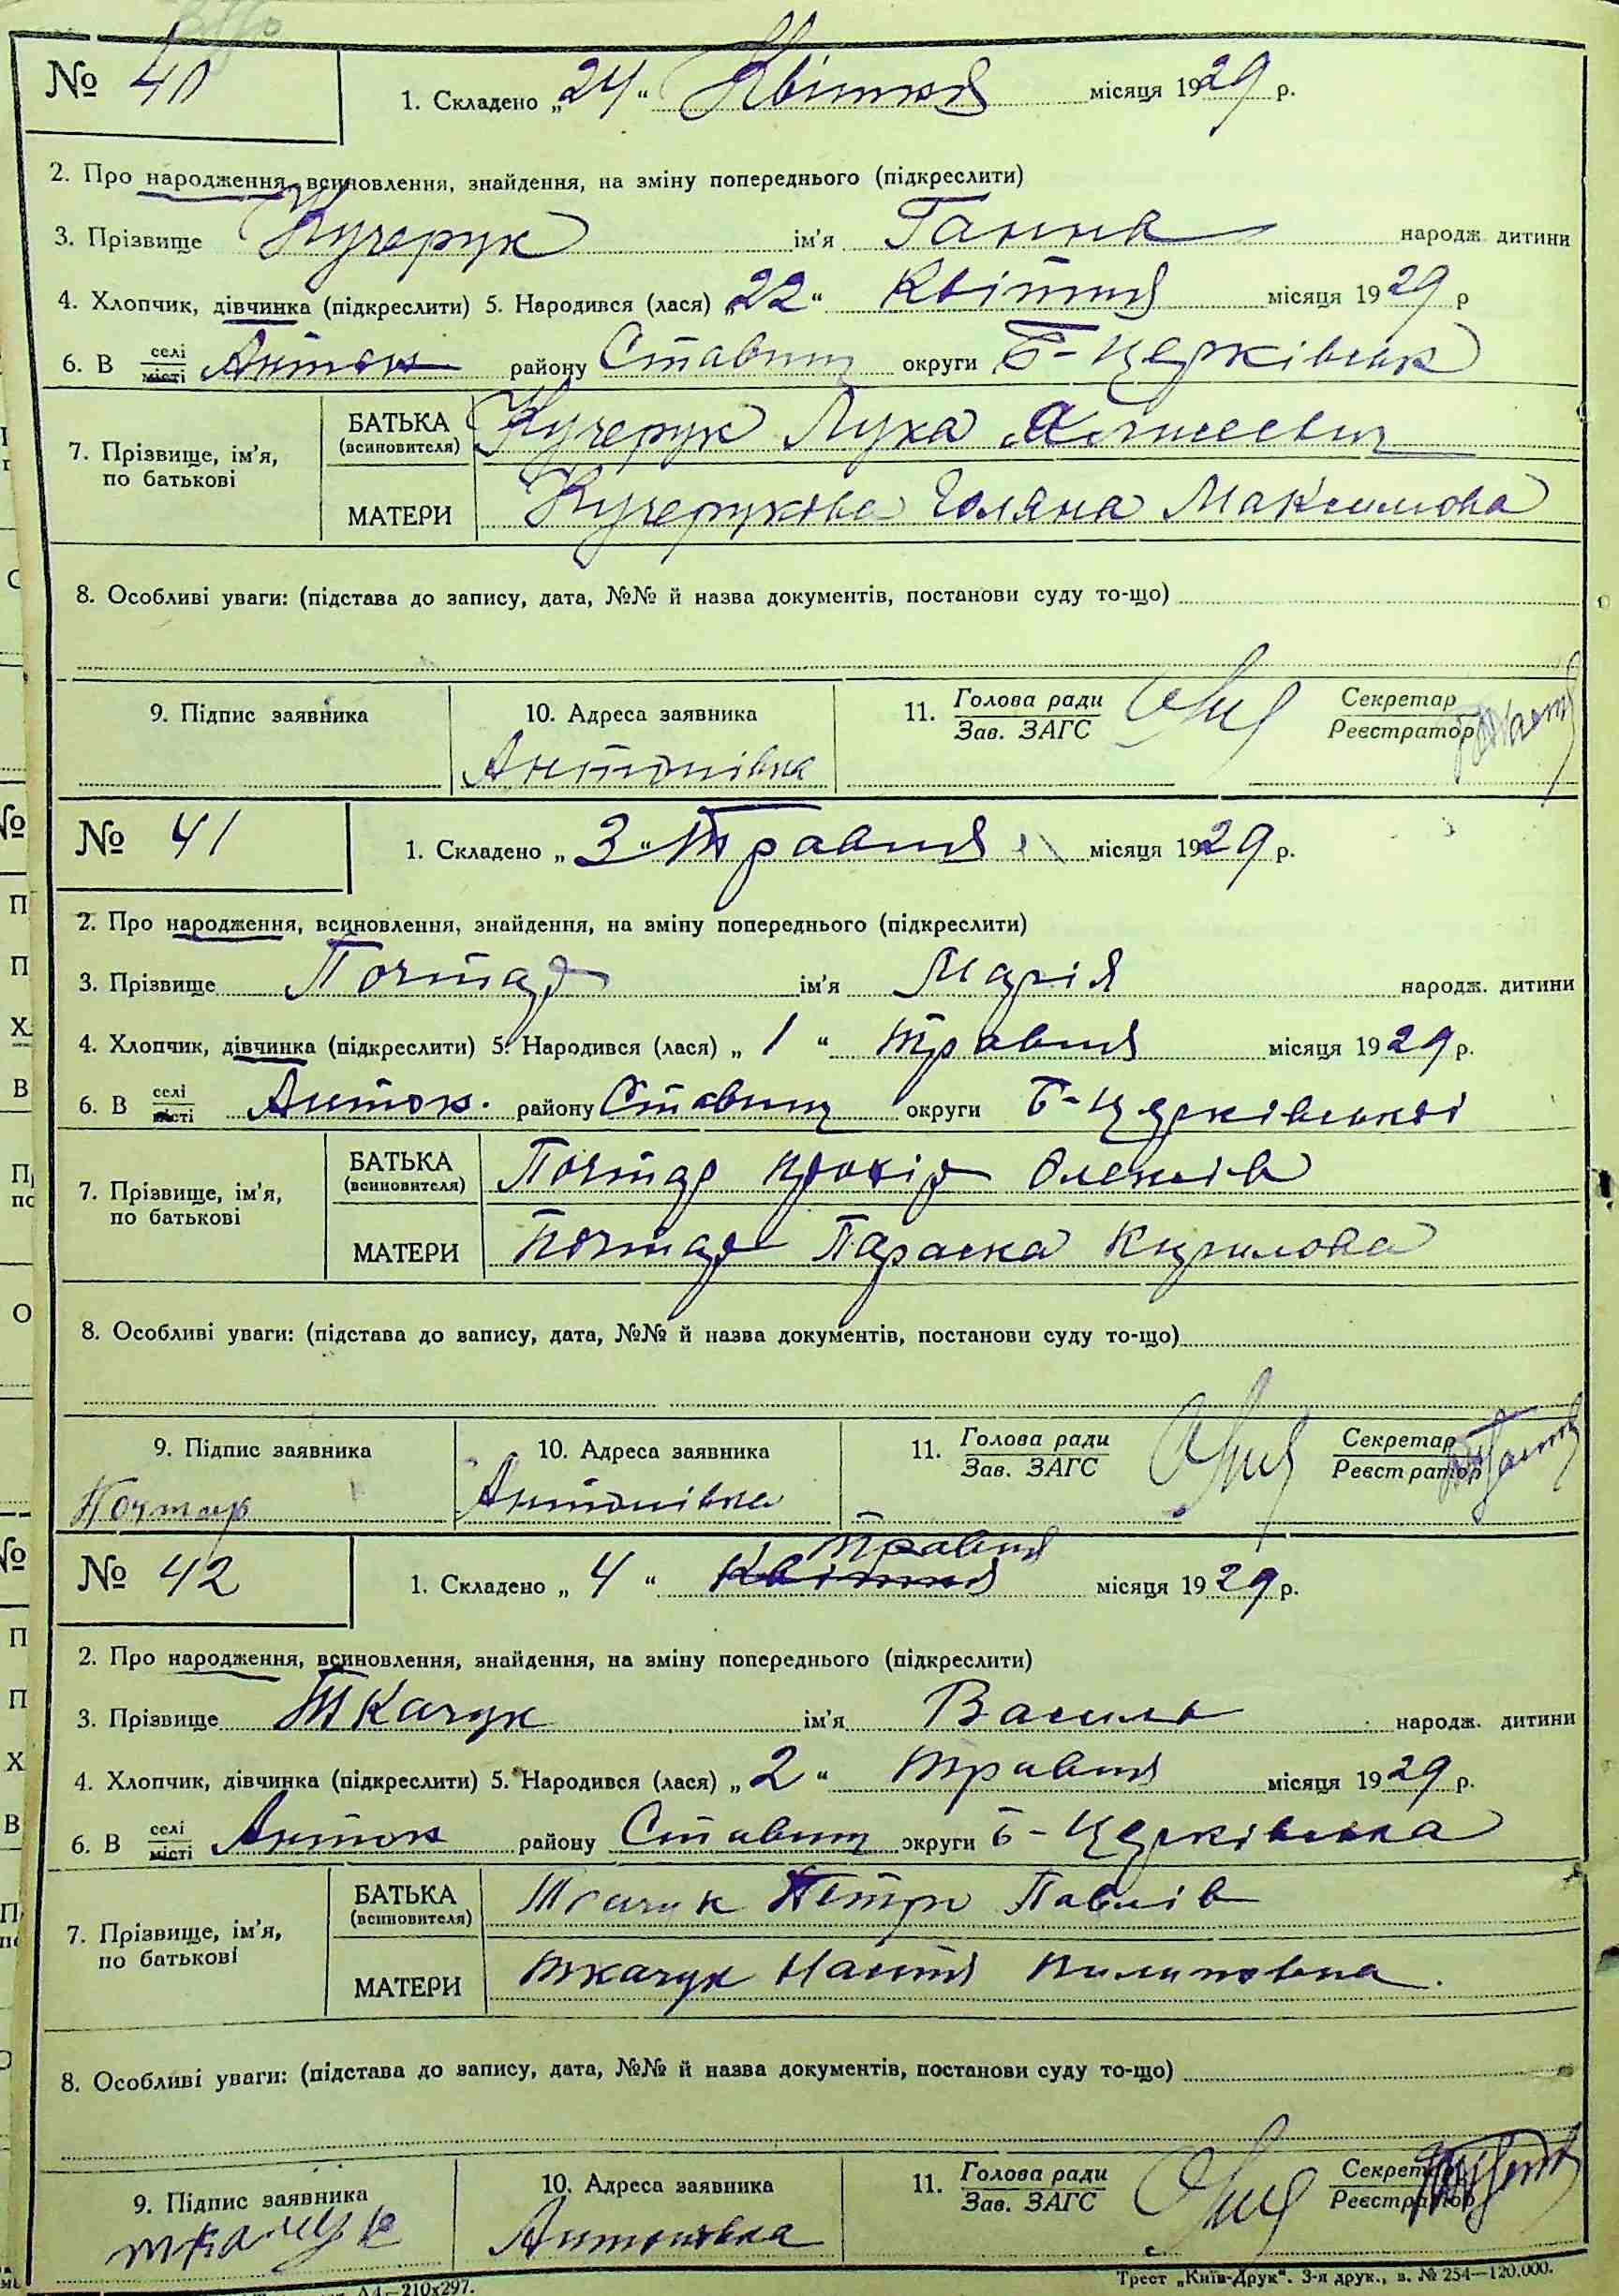 № 40
1. Складено „24“ Квітня місяця 1929 р.
2. Про народження, всиновлення, знайдення, на зміну попереднього (підкреслити)
3. Прізвище Кучерук ім'я Ганна народж. дитини
4. Хлопчик, дівчинка (підкреслити) 5. Народився (лася) „22“ Квітня місяця 1929 р
6. В селі місті Антон району Ставищ округи Б-Церківськ
7. Прізвище, ім'я, по батькові
БАТЬКА (всиновителя) Кучерук Лука
МАТЕРИ Кучерукова Максимова
8. Особливі уваги: (підстава до запису, дата, №№ й назва документів, постанови суду то-що)
9. Підпис заявника
10. Адреса заявника
Антонівка
11. Голова ради Зав. ЗАГС
Секретар Реєстратор
№ 41
1. Складено „3“ Травня місяця 1929 р.
2. Про народження, всиновлення, знайдення, на зміну попереднього (підкреслити)
3. Прізвище Почтар ім'я Марія народж. дитини
4. Хлопчик, дівчинка (підкреслити) 5. Народився (лася) „1“ травня місяця 1929 р.
6. В селі місті Антон. району Ставищ округи Б-Церківської
7. Прізвище, ім'я, по батькові
БАТЬКА (всиновителя) Почтар Прохір Олексіїв
МАТЕРИ Почтар Параска Кирилова
8. Особливі уваги: (підстава до запису, дата, №№ й назва документів, постанови суду то-що)
9. Підпис заявника
Почтар
10. Адреса заявника
Антонівка
11. Голова ради Зав. ЗАГС
Секретар Реєстратор
№ 42
травня
1. Складено „4“ Квітня місяця 1929 р.
2. Про народження, всиновлення, знайдення, на зміну попереднього (підкреслити)
3. Прізвище Ткачук ім'я Василь народж. дитини
4. Хлопчик, дівчинка (підкреслити) 5. Народився (лася) „2“ травня місяця 1929 р.
6. В селі місті Антон району Ставищ округи Б-Церківська
7. Прізвище, ім'я, по батькові
БАТЬКА (всиновителя) Ткачук Петро Павлів
МАТЕРИ Ткачук Настя Пилиповна.
8. Особливі уваги: (підстава до запису, дата, №№ й назва документів, постанови суду то-що)
9. Підпис заявника
Ткачук
10. Адреса заявника
Антонівка
11. Голова ради Зав. ЗАГС
Секретар Реєстратор
А4—210х297.
Трест „Київ-Друк“. 3-я друк., з. № 254—120.000.